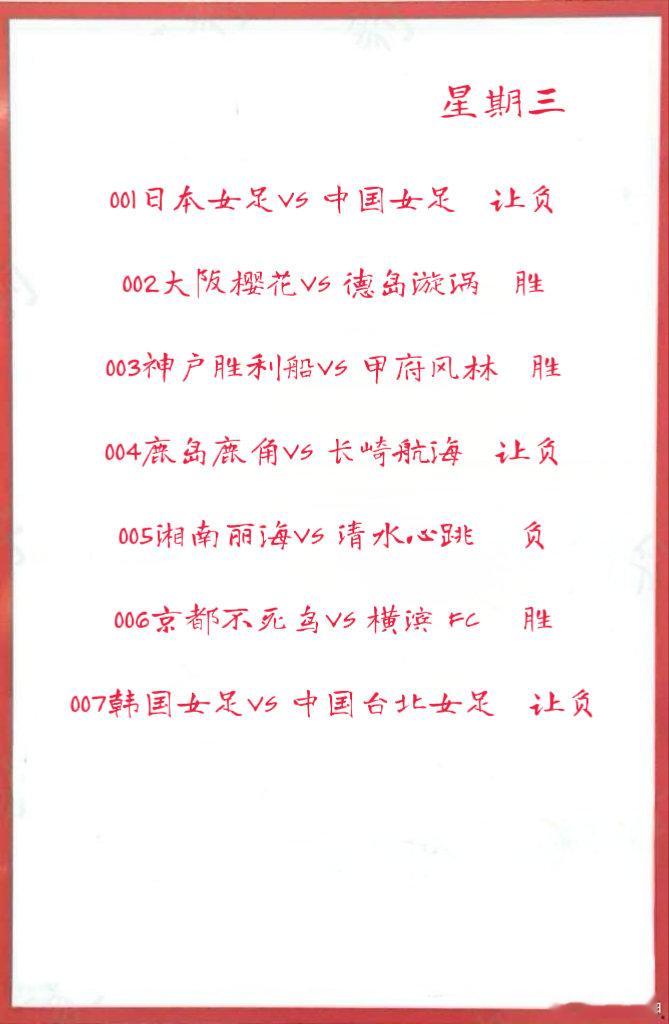 星期三
001日本女足VS 中国女足 让负
002大阪樱花VS 德岛漩涡 胜
003神户胜利船VS 甲府风林 胜
004鹿岛鹿角VS 长崎航海 让负
005湘南丽海VS 清水心跳 负
006京都不死鸟VS 横滨 FC 胜
007韩国女足VS 中国台北女足 让负